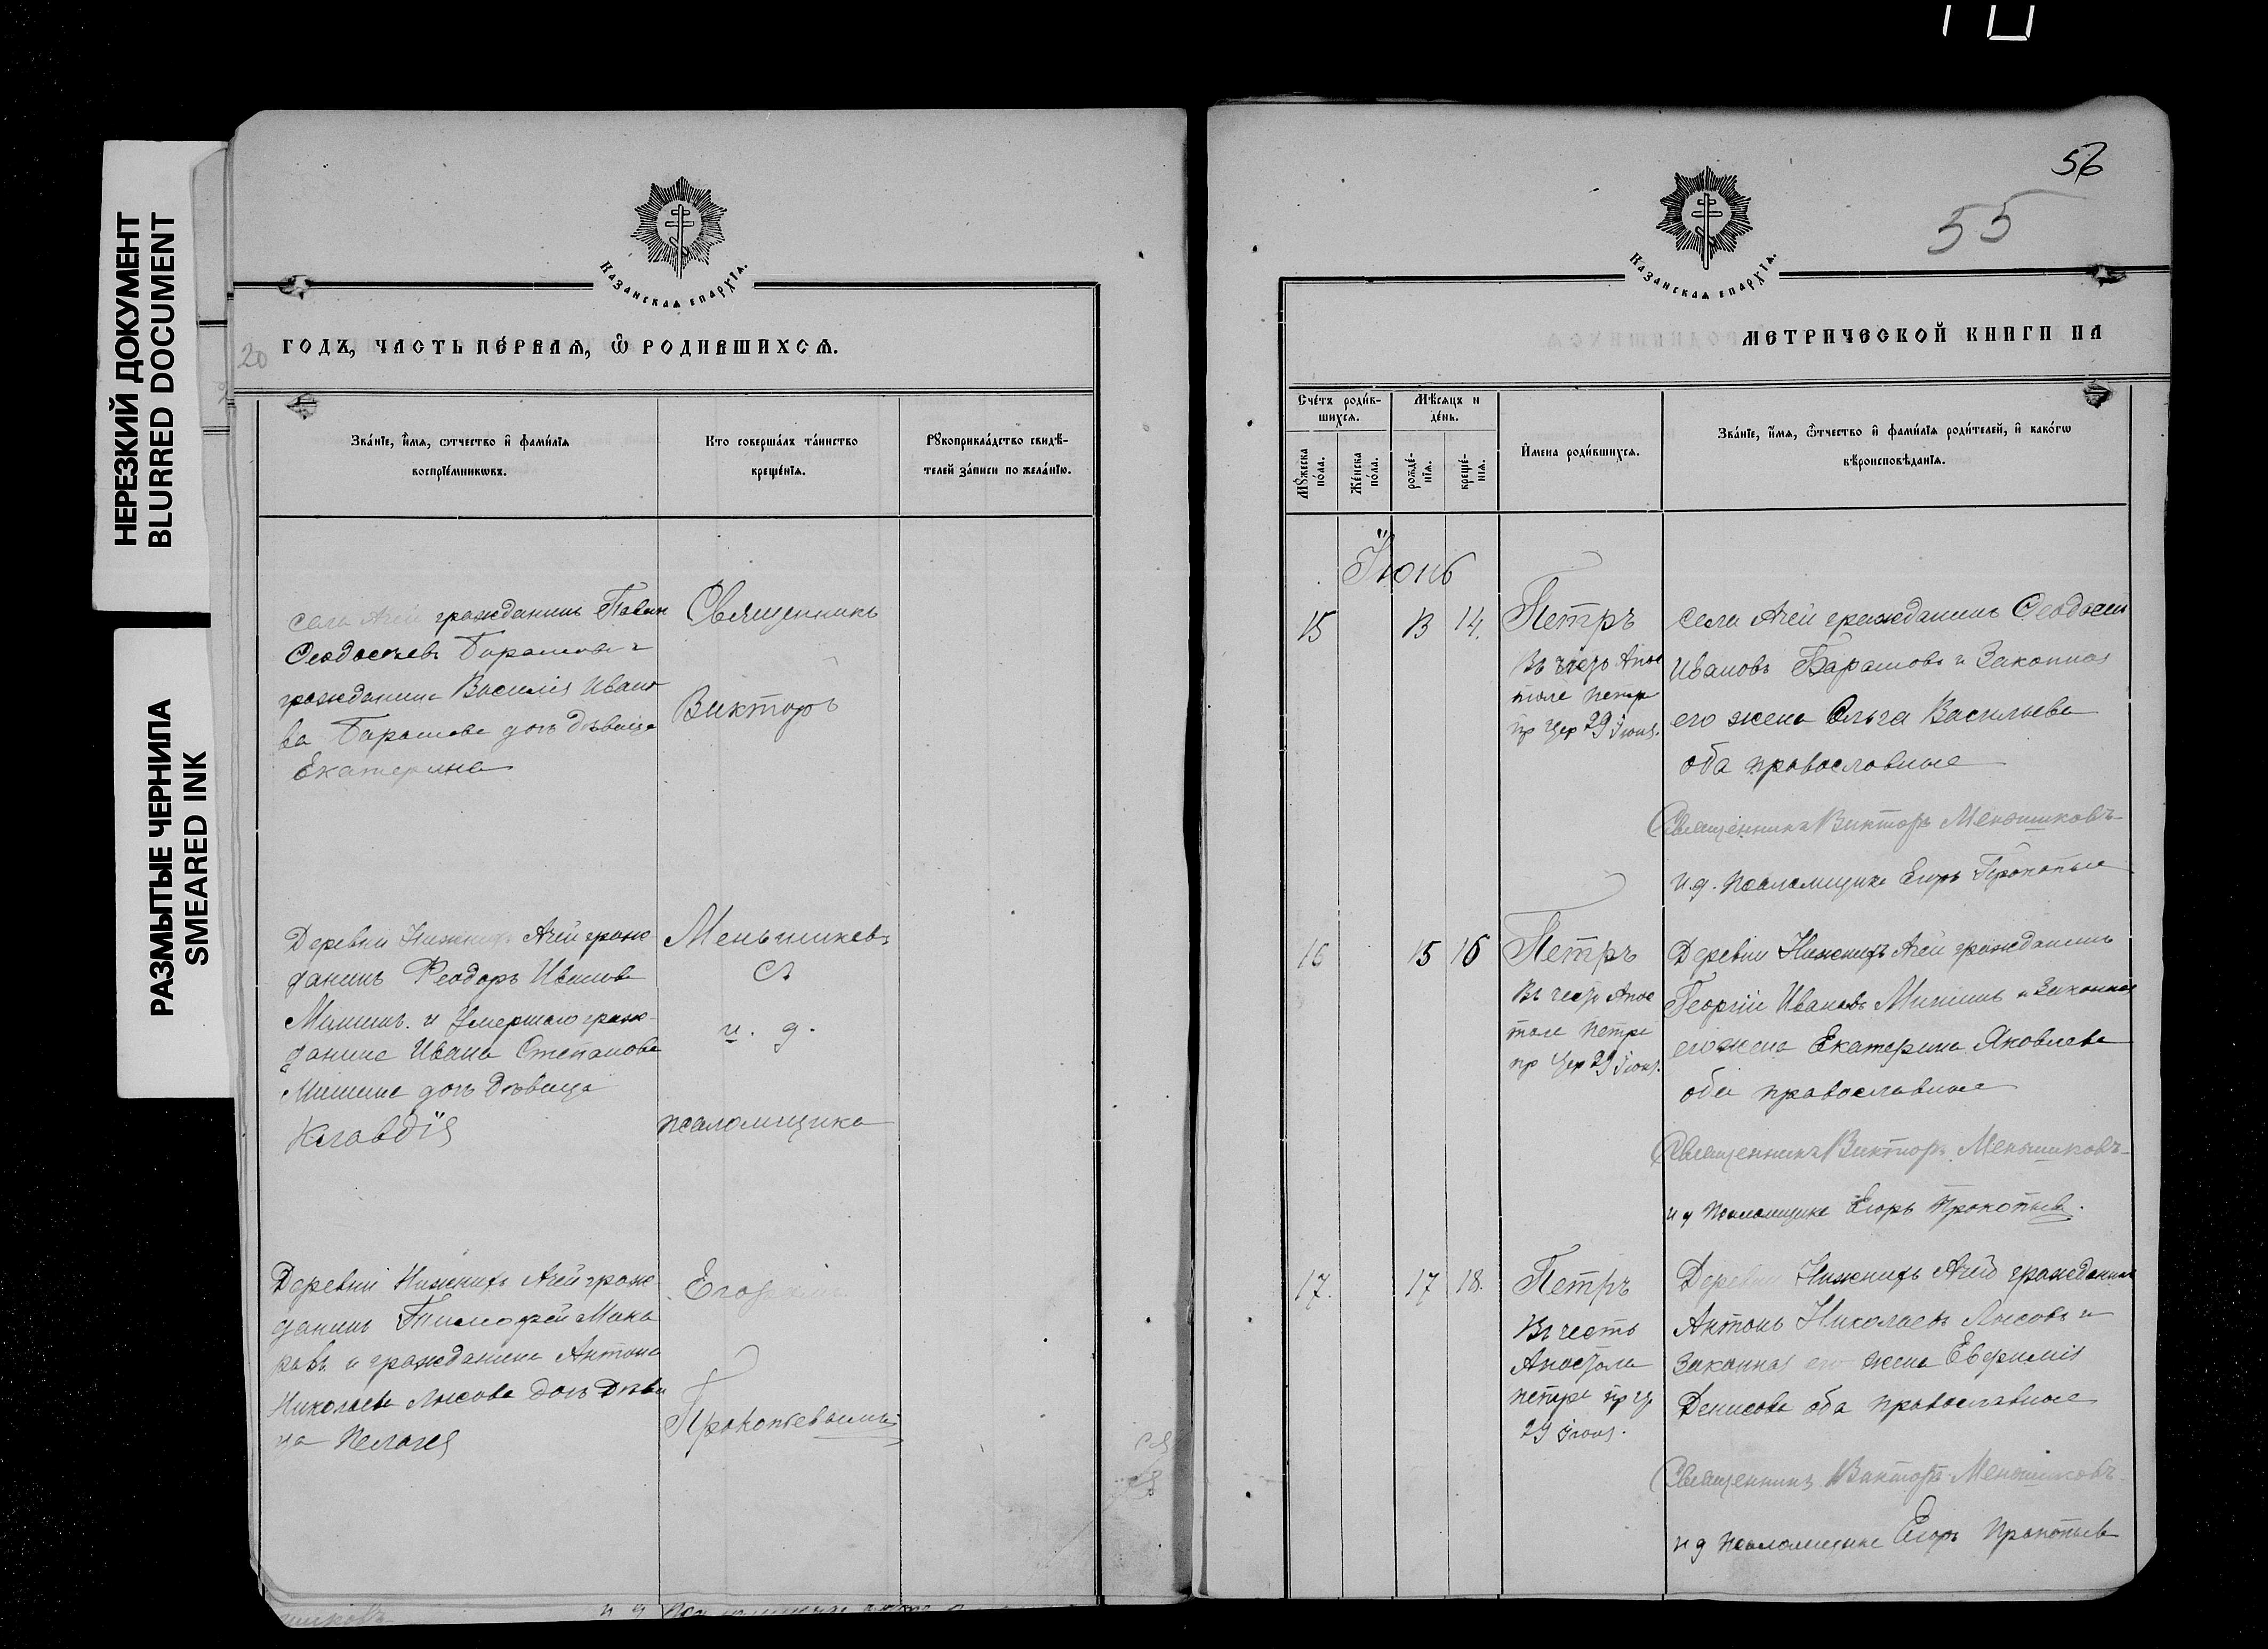 НЕРЕЗКИЙ ДОКУМЕНТ
BLURRED DOCUMENT
РАЗМЫТЫЕ ЧЕРНИЛА
SMEARED INK
Казанская епархїа.
20
годъ, часть пéрвая, ѽ родившихся.
Звáнїе, и́мя, ѻтчество и фами́лїя
воспрїéмникωвъ.
Кто совершáлъ тáинство
крещéнїя.
Рꙋкоприклáдство свидѣ-
телей зáписи по желáнїю.
села Ачей гражданинъ Павел
Феодосіевъ Барашовъ и
гражданина Василія Ивано
ва Барашова дочь дѣвица
Екатерина
Священникъ
Викторъ
Деревни Нижнихъ Ачей граж
данинъ Феодоръ Ивановъ
Мишинъ и умершаго граж
данина Ивана Степанова
Мишина дочь дѣвица
Клавдія
Меньшиковъ
съ
и. д.
псаломщика
Деревни Нижнихъ Ачей граж
данинъ Тимофей Мака
ровъ и гражданина Антона
Николаева Лысова дочь дѣви
ца Пелагея
Прокопьевымъ
56
55
Казанская епархїа.
метрической книги на
Счéтъ роди́в-
шихся.
Мѣ́сяцъ и
дéнь.
Мꙋжеска
пóла.
Жéнска
пóла.
рождé-
нїя.
крещé-
нїя.
И́мена роди́вшихся.
Звáнїе, и́мя, ѻ́тчество и фами́лїя роди́телей, и какóгω
вѣроисповѣ́данїя.
Іюнь
15 13 14.
Петръ
Въ честь Апос
тола Петра
пр Цер 29 Іюня.
села Ачей гражданинъ Феодосій
Ивановъ Барашовъ и Законная
его жена Ольга Васильева
оба православные
Священникъ Викторъ Меньшиковъ
и.д. псаломщика Егоръ Прокопьев
16 15 16
Петръ
Въ честь Апос
тола Петра
пр Цер 29 Іюня.
Деревни Нижнихъ Ачей гражданинъ
Георгій Ивановъ Мишинъ и Законная
его жена Екатерина Яковлева
оба православные
Священникъ Викторъ Меньшиковъ
и д псаломщика Егоръ Прокопьев.
17. 17 18.
Петръ
Въ честь
Апостола
Петра пр ц.
29 Іюня.
Деревни Нижнихъ Ачей гражданинъ
Антонъ Николаевъ Лысовъ и
законная его жена Евфимія
Денисова оба православные
Священникъ Викторъ Меньшиковъ
и д псаломщика Егоръ Прокопьев